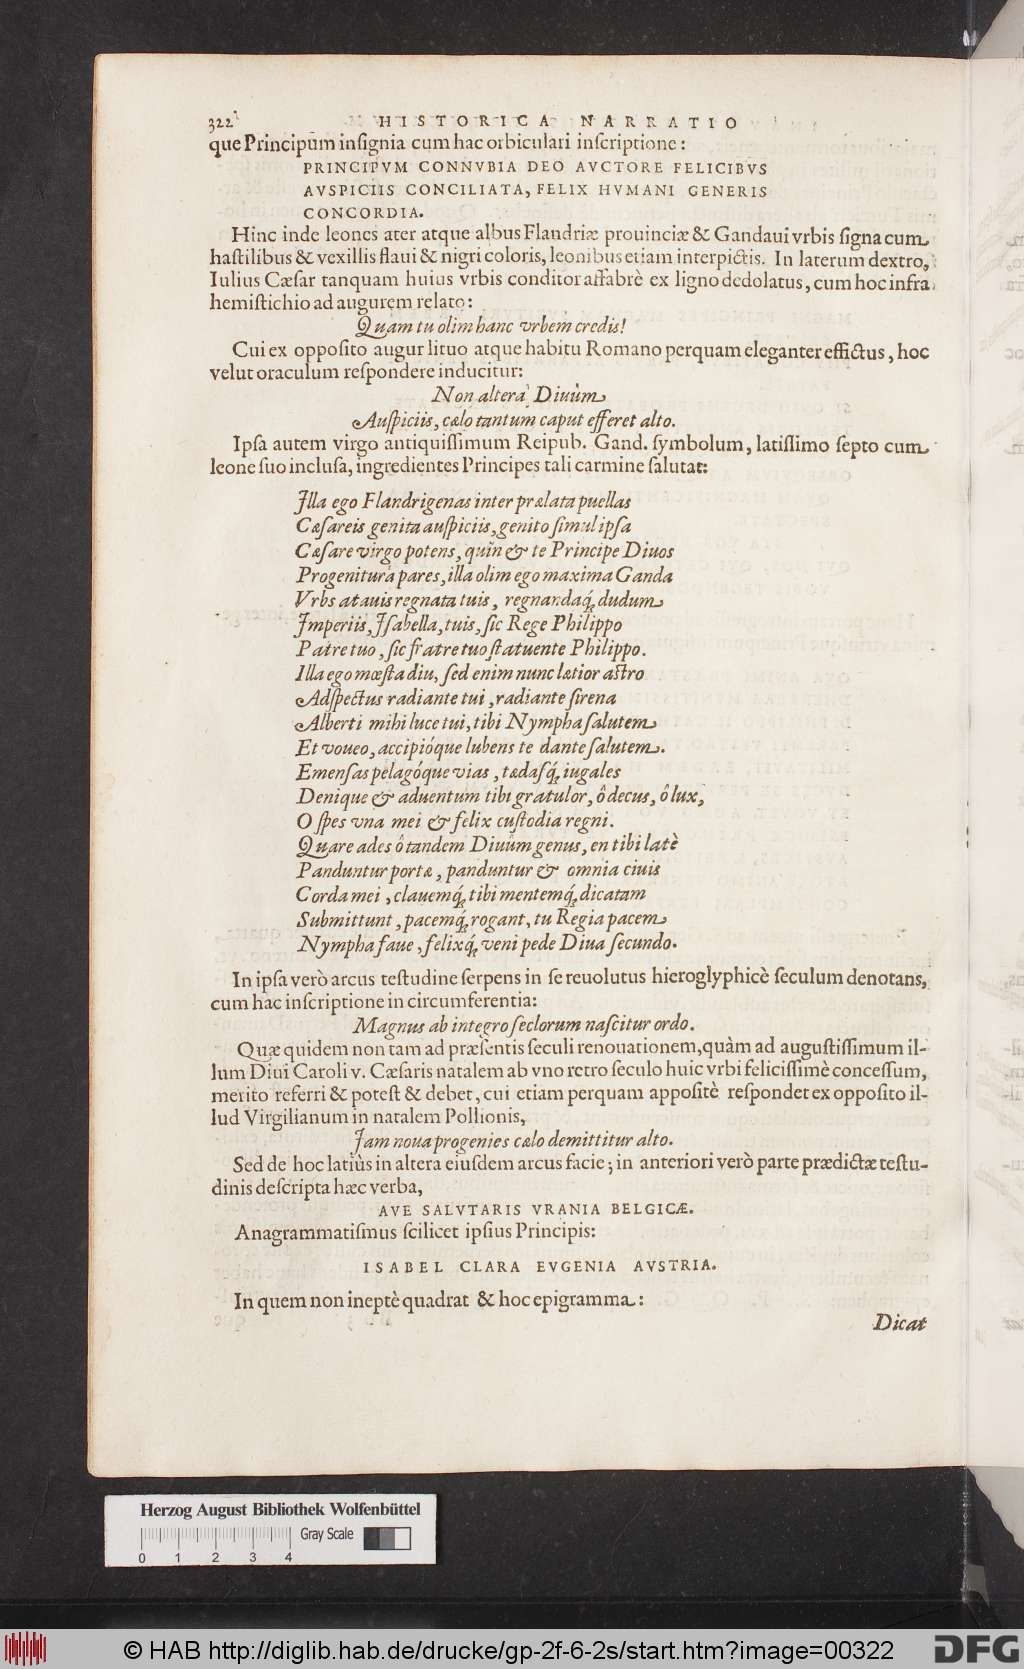 322 HISTORICA NARRATIO
que Principum insignia cum hac orbiculari inscriptione:
PRINCIPVM CONNVBIA DEO AVCTORE FELICIBVS
AVSPICIIS CONCILIATA, FELIX HVMANI GENERIS
CONCORDIA.
Hinc inde leones ater atque albus Flandriæ prouinciæ & Gandaui vrbis signa cum
hastilibus & vexillis flaui & nigri coloris, leonibus etiam interpictis. In laterum dextro,
Iulius Cæsar tanquam huius vrbis conditor affabrè ex ligno dedolatus, cum hoc infra
hemistichio ad augurem relato:
Quam tu olim hanc vrbem credis!
Cui ex opposito augur lituo atque habitu Romano perquam eleganter effictus, hoc
velut oraculum respondere inducitur:
Non altera Diuûm
Auspiciis, cælo tantum caput efferet alto.
Ipsa autem virgo antiquissimum Reipub. Gand. symbolum, latissimo septo cum
leone suo inclusa, ingredientes Principes tali carmine salutat:
Illa ego Flandrigenas inter prælata puellas
Cæsareis genita auspiciis, genito simul ipsa
Cæsare virgo potens, quin & te Principe Diuos
Progenitura pares, illa olim ego maxima Ganda
Vrbs atauis regnata tuis, regnandaq́; dudum
Imperiis, Isabella, tuis, sic Rege Philippo
Patre tuo, sic fratre tuo statuente Philippo.
Illa ego mœsta diu, sed enim nunc lætior astro
Adspectus radiante tui, radiante sirena
Alberti mihi luce tui, tibi Nympha salutem
Et voueo, accipióque lubens te dante salutem.
Emensas pelagóque vias, tædasq́; iugales
Denique & aduentum tibi gratulor, ô decus, ô lux,
O spes vna mei & felix custodia regni.
Quare ades ô tandem Diuûm genus, en tibi latè
Panduntur portæ, panduntur & omnia ciuis
Corda mei, clauemq́; tibi mentemq́; dicatam
Submittunt, pacemq́; rogant, tu Regia pacem
Nympha faue, felixq́; veni pede Diua secundo.
In ipsa verò arcus testudine serpens in se reuolutus hieroglyphicè seculum denotans,
cum hac inscriptione in circumferentia:
Magnus ab integro seclorum nascitur ordo.
Quæ quidem non tam ad præsentis seculi renouationem, quàm ad augustissimum il-
lum Diui Caroli v. Cæsaris natalem ab vno retro seculo huic vrbi felicissimè concessum,
merito referri & potest & debet, cui etiam perquam appositè respondet ex opposito il-
lud Virgilianum in natalem Pollionis,
Iam noua progenies cælo demittitur alto.
Sed de hoc latiùs in altera eiusdem arcus facie; in anteriori verò parte prædictæ testu-
dinis descripta hæc verba,
AVE SALVTARIS VRANIA BELGICÆ.
Anagrammatismus scilicet ipsius Principis:
ISABEL CLARA EVGENIA AVSTRIA.
In quem non ineptè quadrat & hoc epigramma:
Dicat
Herzog August Bibliothek Wolfenbüttel
Gray Scale
0 1 2 3 4
© HAB http://diglib.hab.de/drucke/gp-2f-6-2s/start.htm?image=00322
DFG